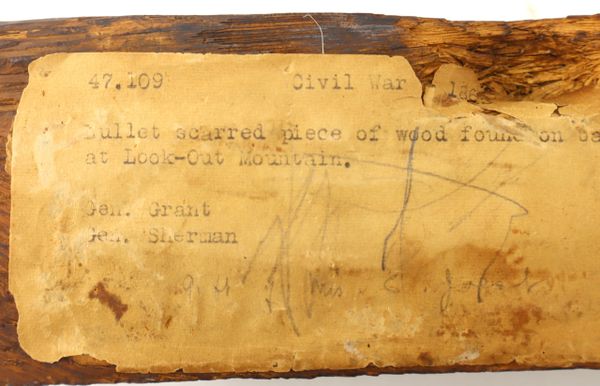 47.109 Civil War 186
Bullet scarred piece of wood found on ba
at Look-Out Mountain.
Gen. Grant
Gen. Sherman